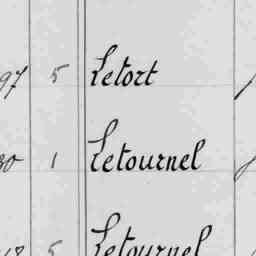 97 5 Letort
30 1 Letournel
5 Letournel